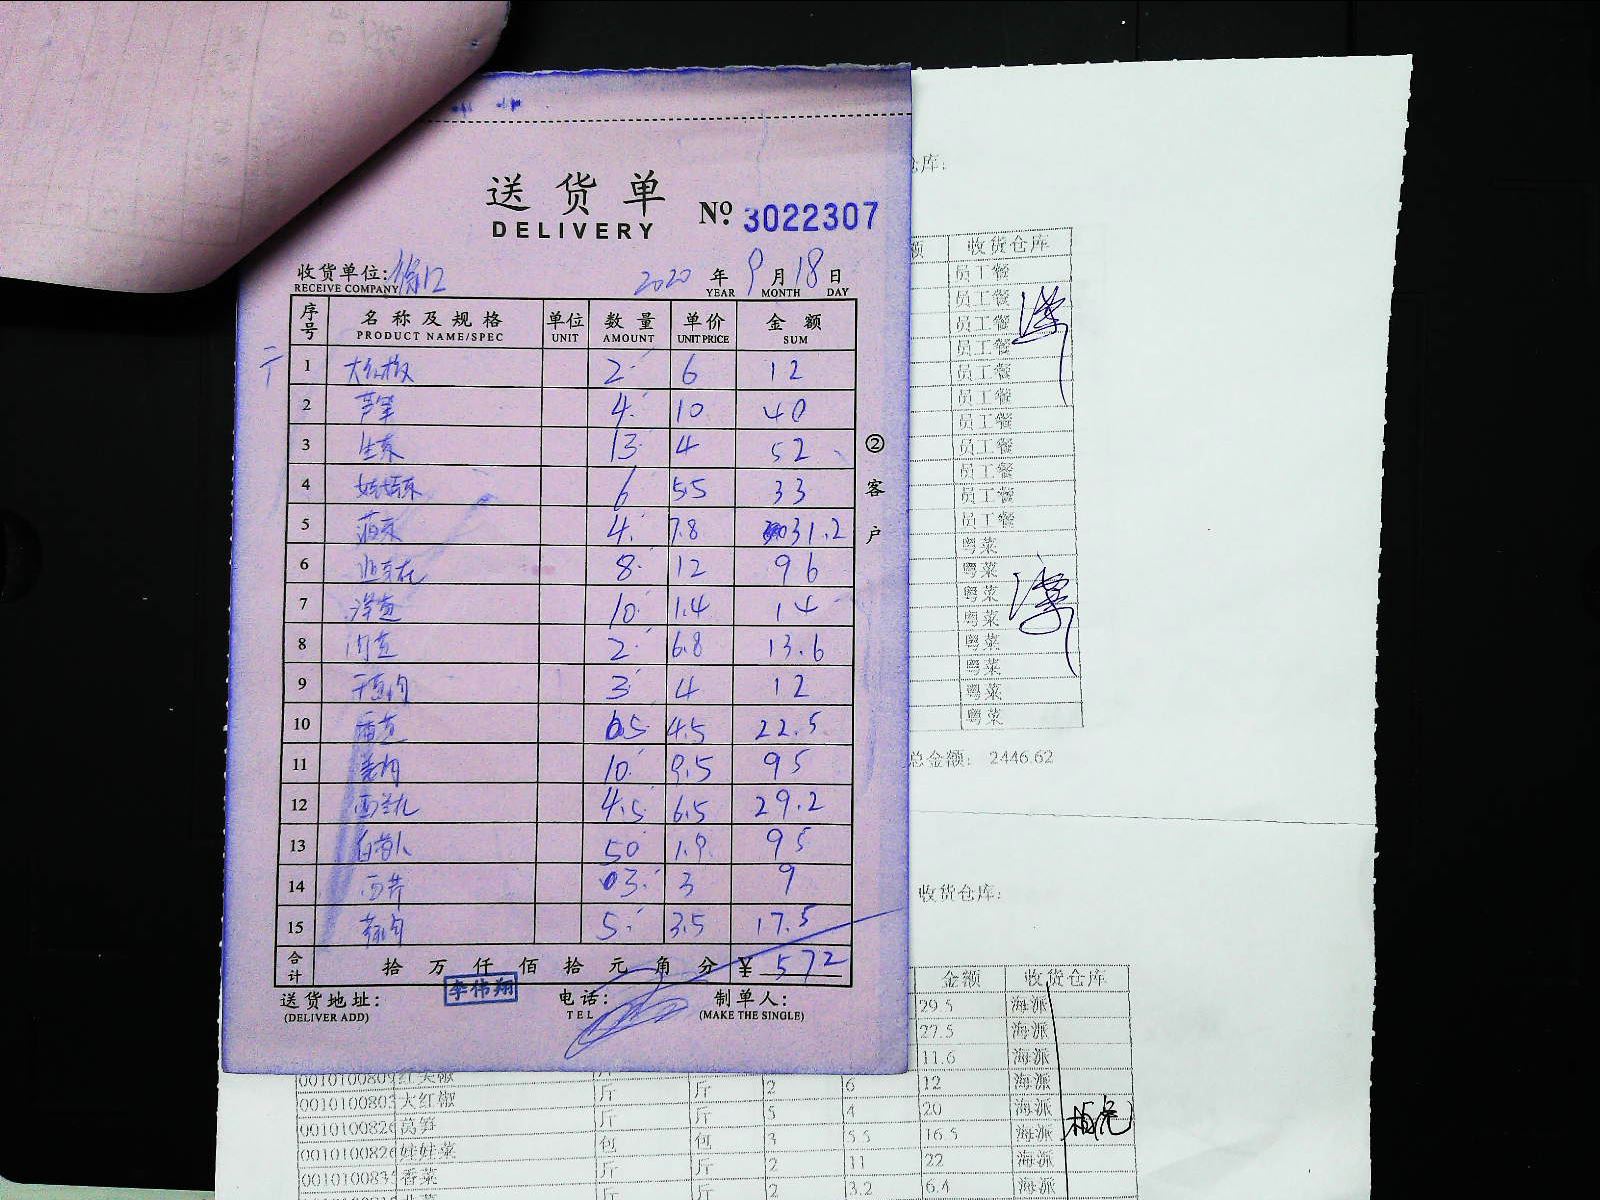 送货单
DELIVERY
№ 3022307
收货单位:
RECEIVE COMPANY
2020 年 9 月 18 日
YEAR MONTH DAY
序号 名称及规格 单位 数量 单价 金额
PRODUCT NAME/SPEC UNIT AMOUNT UNIT PRICE SUM
1 大红椒 2 6 12
2 芦笋 4 10 40
3 生菜 13 4 52
4 娃娃菜 6 5.5 33
5 菠菜 4 7.8 31.2
6 韭菜花 8 12 96
7 洋葱 10 1.4 14
8 肉葱 2 6.8 13.6
9 干葱肉 3 4 12
10 4.5 22.5
11 姜肉 10 9.5 95
12 西兰花 4.5 6.5 29.2
13 白萝卜 50 1.9 95
14 西芹 3 3 9
15 5 3.5 17.5
合计 拾 万 仟 佰 拾 元 角 分 ¥ 572
送货地址:
(DELIVER ADD)
李伟翔
电话:
TEL
制单人:
(MAKE THE SINGLE)
②客户
仓库:
额 收货仓库
员工餐
员工餐
员工餐
员工餐
员工餐
员工餐
员工餐
员工餐
员工餐
员工餐
员工餐
粤菜
粤菜
粤菜
粤菜
粤菜
粤菜
粤菜
粤菜
总金额: 2446.62
收货仓库:
金额 收货仓库
29.5 海派
27.5 海派
11.6 海派
红尖椒 斤 斤 2 6 12 海派
大红椒 斤 斤 5 4 20 海派
莴笋 包 包 3 5.5 16.5 海派
娃娃菜 斤 斤 2 11 22 海派
香菜 斤 斤 2 3.2 6.4 海派